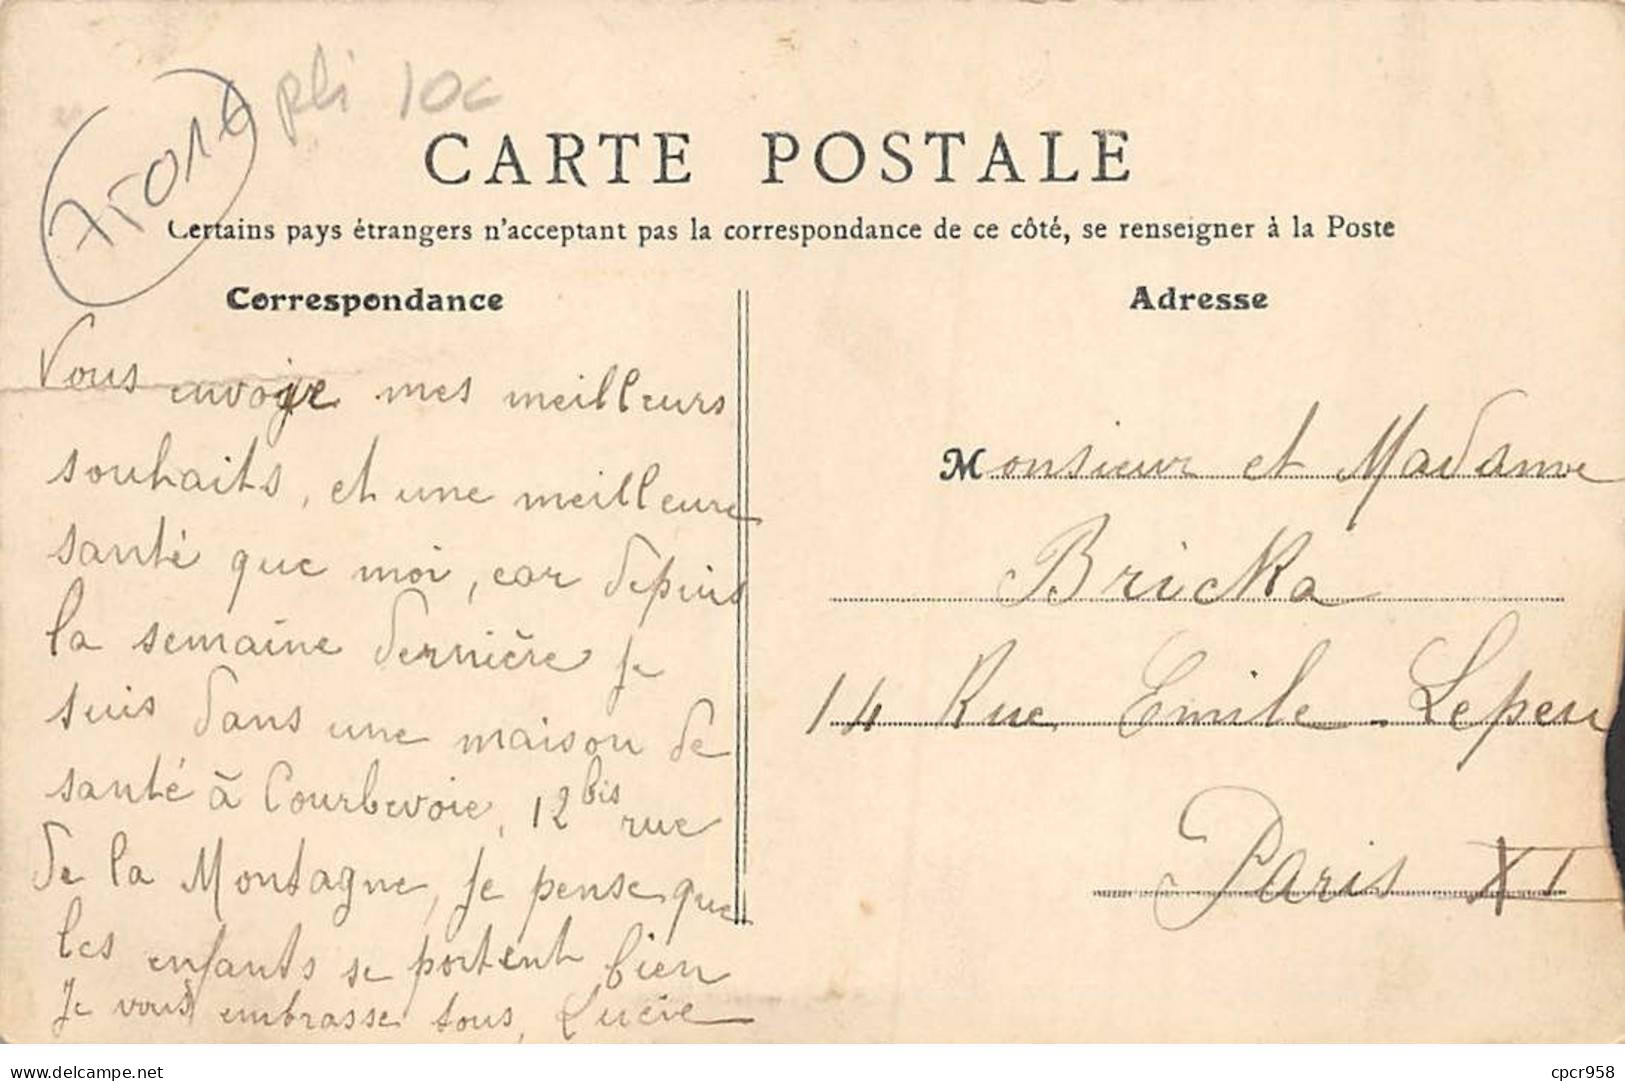 75014
pli 10c
CARTE POSTALE
Certains pays étrangers n'acceptant pas la correspondance de ce côté, se renseigner à la Poste
Correspondance
Vous envoye mes meilleurs
souhaits, et une meilleure
santé que moi, car depuis
la semaine dernière je
suis dans une maison de
santé à Courbevoie, 12 bis rue
de la Montagne, je pense que
les enfants se portent bien
Je vous embrasse tous, Lucie
Adresse
Monsieur et Madame
Bricka
14 Rue Emile Lepeu
Paris XI
delcampe.net
cpcr958